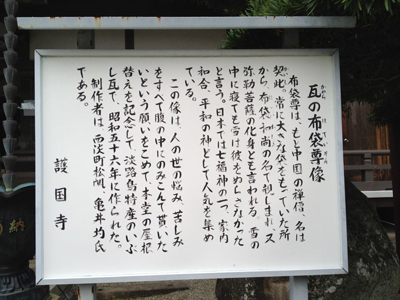 瓦の布袋尊像
かわら ほ てい そん
布袋尊は、もと中国の禅僧、名は
契此。常に大へな袋をもっていた所
から、布袋和尚の名で親しまれ、又
弥勒菩薩の化身とも言われる。雪の
中に寝ても雪は彼をぬらさなかった
と言う。日本では七福神の一つ、家内
和合、平和の神として人気を集め
ている。
この像は、人の世の悩み、苦しみ
をすべて腹の中にのみこんで貰いた
いという願いをこめて、本堂の屋根
替えを記念して、淡路島特産のいぶ
し瓦で、昭和五十六年に作られた。
制作者は、西淡町松帆、亀井均氏
である。
護国寺
納